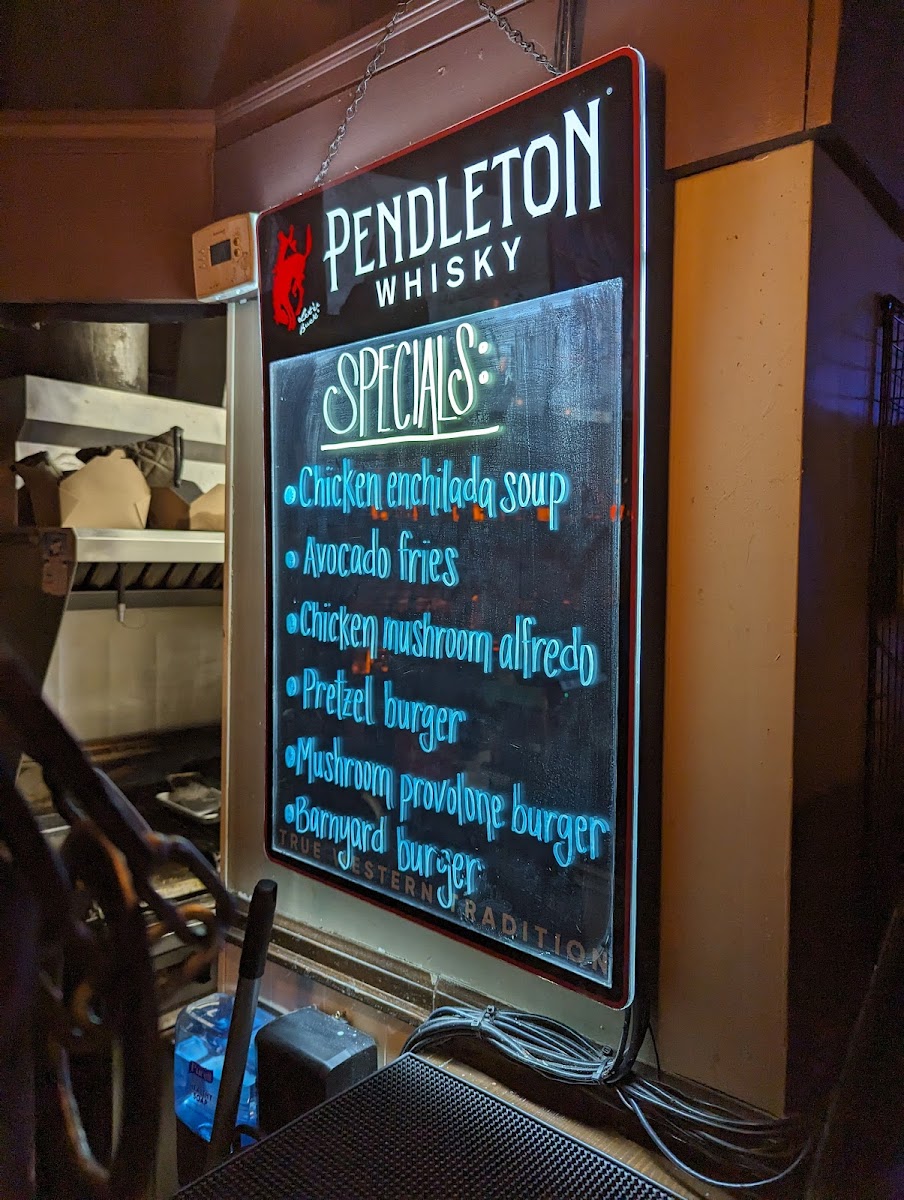 PENDLETON®
WHISKY
Let'er
Buck®
SPECIALS:
• Chicken enchilada soup
• Avocado fries
• Chicken mushroom alfredo
• Pretzel burger
• Mushroom provolone burger
• Barnyard burger
TRUE WESTERN TRADITION